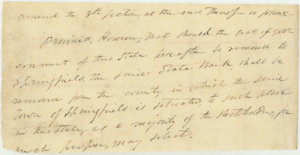 amend the 8th section, at the end thereof
Provided, However, that should the seat of government of this State ever after be removed to
Springfield the said State Bank shall be
removed from the county in which the
Town of Springfield is situated, to such place
in this State, as a majority of the Stockholders, for
such purpose, may select.